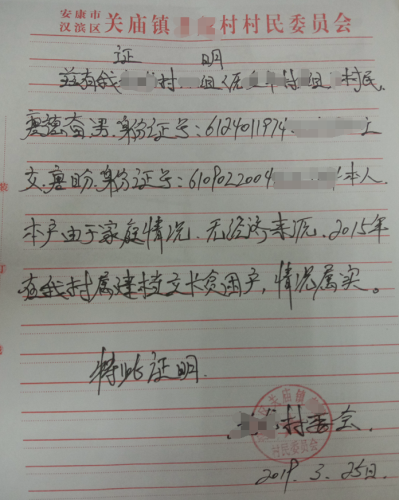 安康市
汉滨区 关庙镇 村村民委员会
证 明
兹有我 村 组(原 村 组 村民,
唐德奋 男.身份证号:6124011974
女.唐盼.身份证号:6109022004 本人.
本户由于家庭情况.无经济来源.2015年
在我村属建档立卡贫困户,情况属实。
特此证明.
关庙镇
村委会.
村民委员会
2019.3.25日